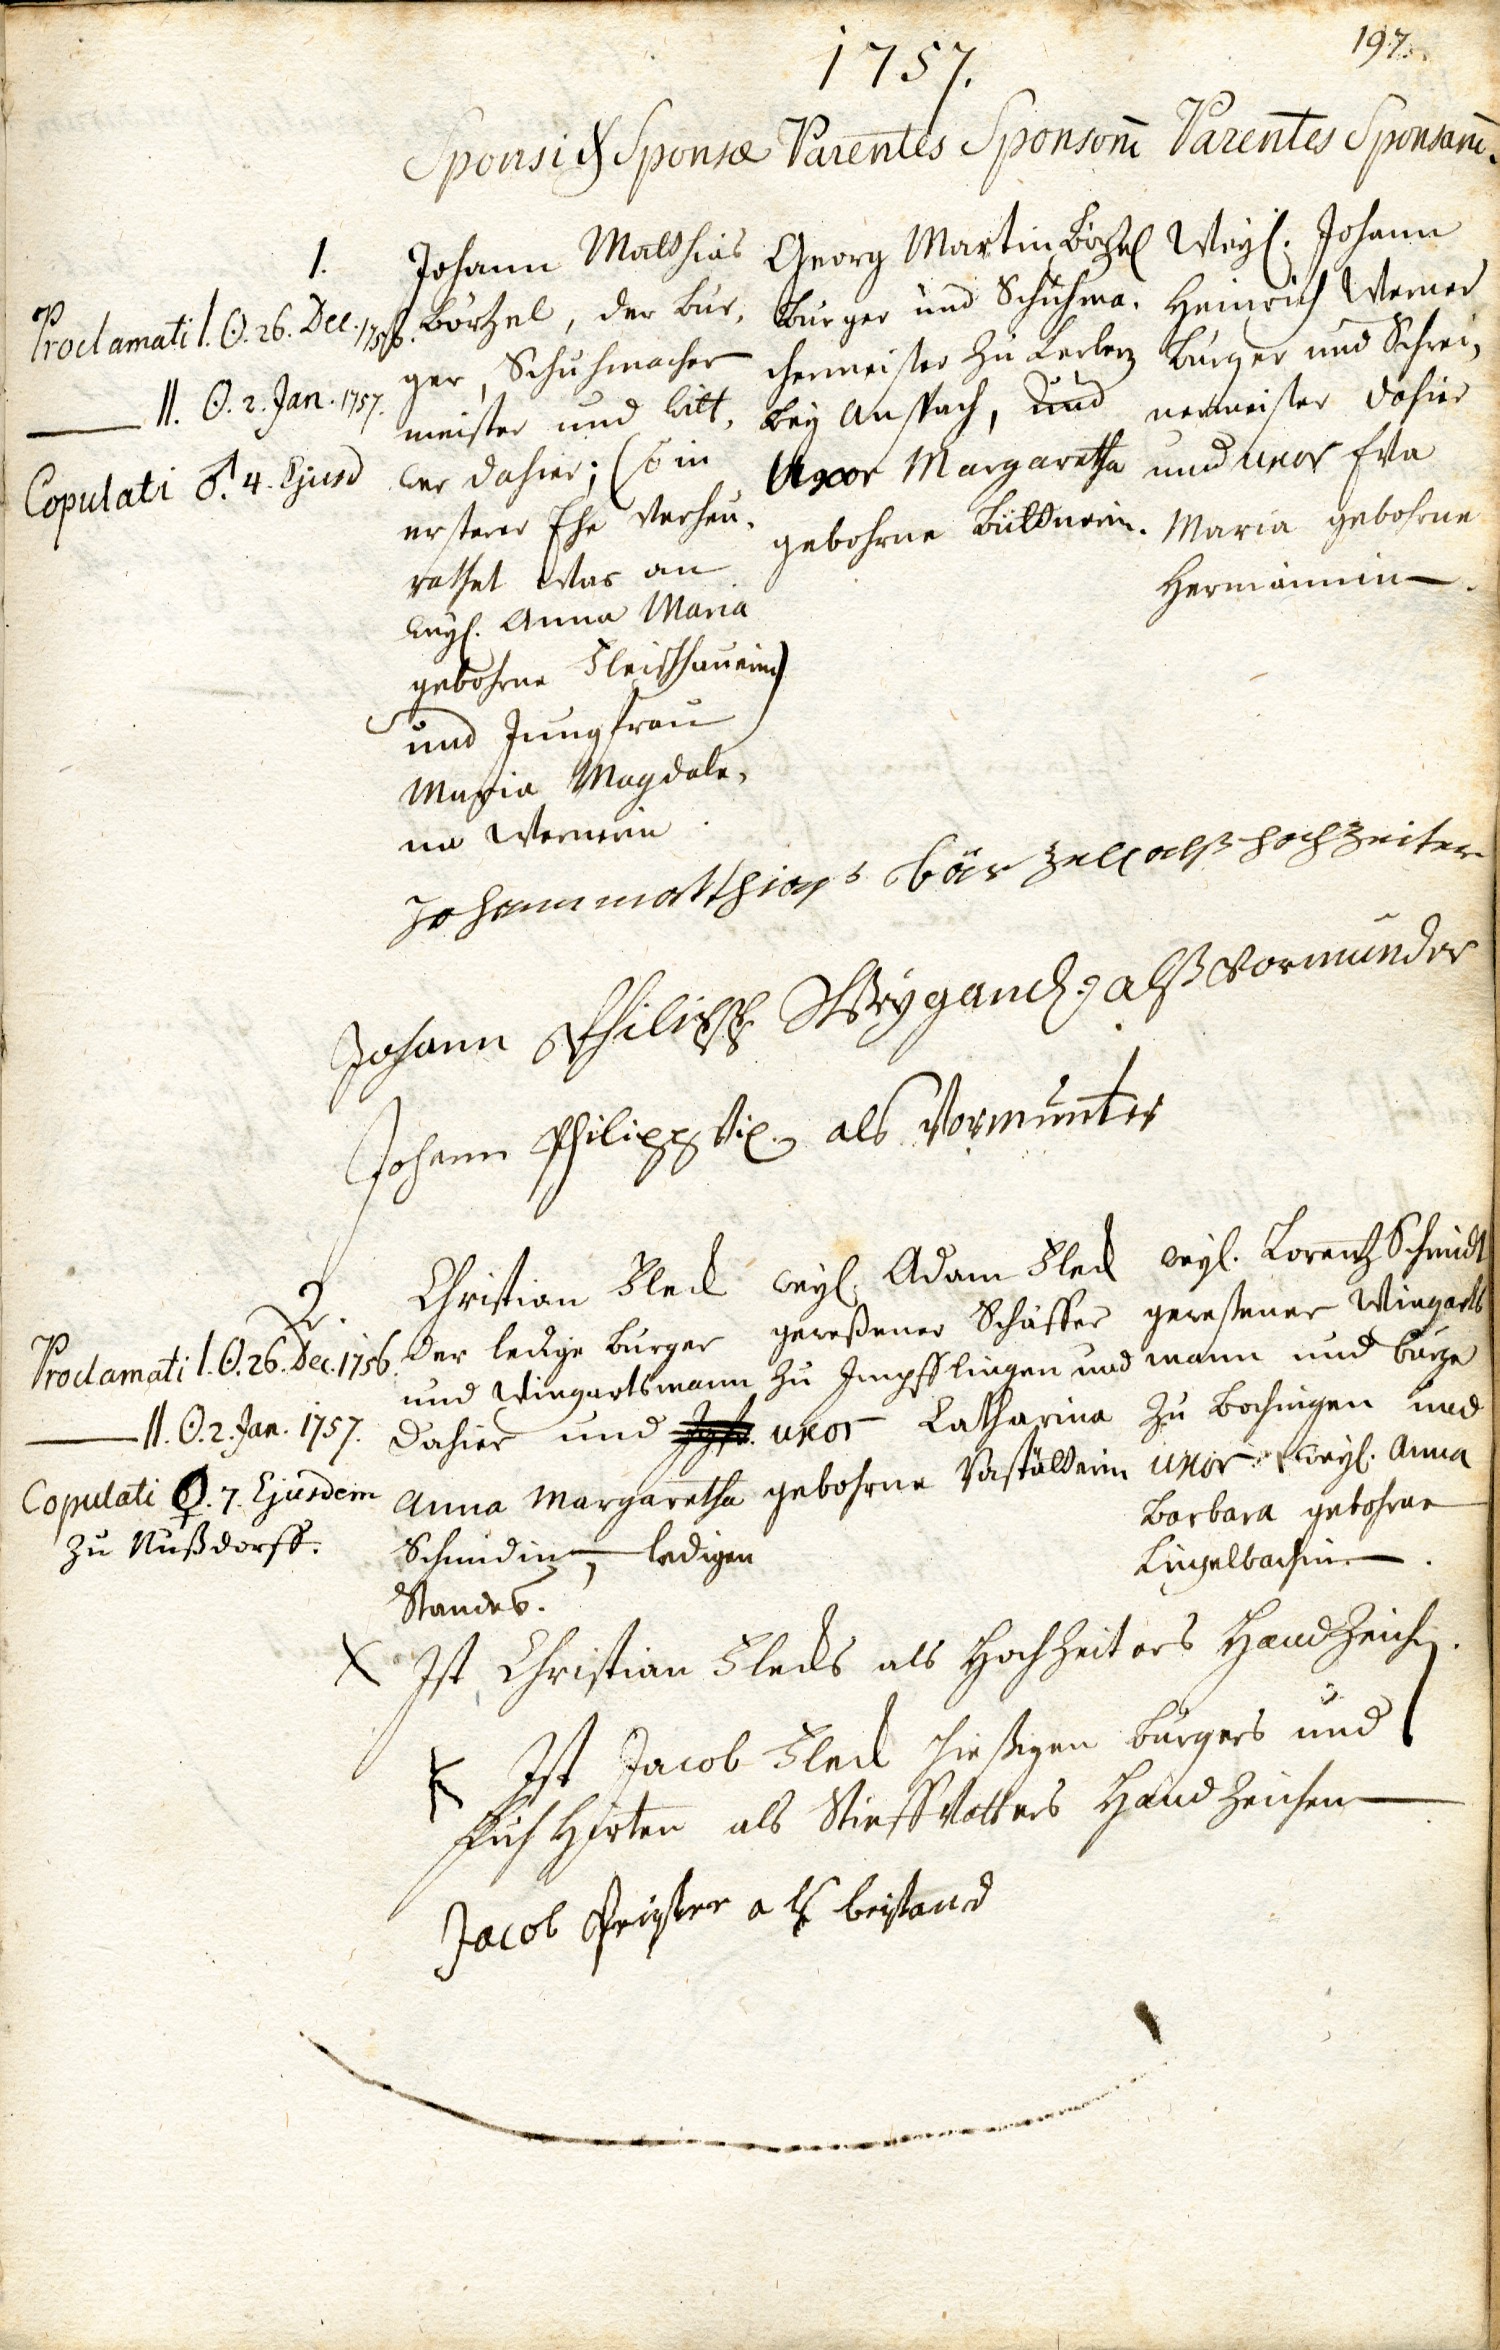 197.
1757.
Sponsi & Sponsæ Parentes Sponsorū Parentes Sponsarū.
1.
Proclamati I. ☉. 26. Dec. 1756.
II. ☉. 2. Jan. 1757.
Copulati ♂. 4. Ejusd
Johann Matthias
Börtzel, der Bur,
ger, Schuhmacher
meister und Witt,
wer dahier; (so in
ersterer Ehe verheu,
rathet war an
weyl. Anna Maria
gebohrne Fleischhauerin)
und Jungfrau
Maria Magdale,
na Wernerin
Georg Martin Börtzel
Burger und Schuhma,
chermeister zu
bey Anspach, und
Uxor Margaretha
gebohrne Büttnerin.
Weyl. Johann
Heinrich Werner
Burger und Schrei,
nermeister dahier
und uxor Eva
Maria gebohrne
Hermännin.
Johann matthias bärzell alß hochzeiter
Johann Philipp Weygand, alß Vormunder
Johann Philipp Vix, als Vormunter
2.
Proclamati I. ☉. 26. Dec. 1756.
II. ☉. 2. Jan. 1757.
Copulati ♀. 7. Ejusdem
zu Nußdorff.
Christian Fleck
der ledige Burger
und Wingartsmann
dahier und
Anna Margaretha
Schmidin, ledigen
Standes.
weyl. Adam Fleck
geweßener Schäffer
zu Impfflingen und
uxor Catharina
gebohrne
weyl. Lorentz Schmidt
gewesener Wingarts
mann und Burger
zu Bochingen und
uxor weyl. Anna
Barbara gebohrne
Lingelbachin.
X Ist Christian Flecks als Hochzeiters Handzeichen.
X Ist Jacob Fleck hießigen Burgers und
Küh Hirten als Stieffvatters Hand Zeichen
Jacob als beistand